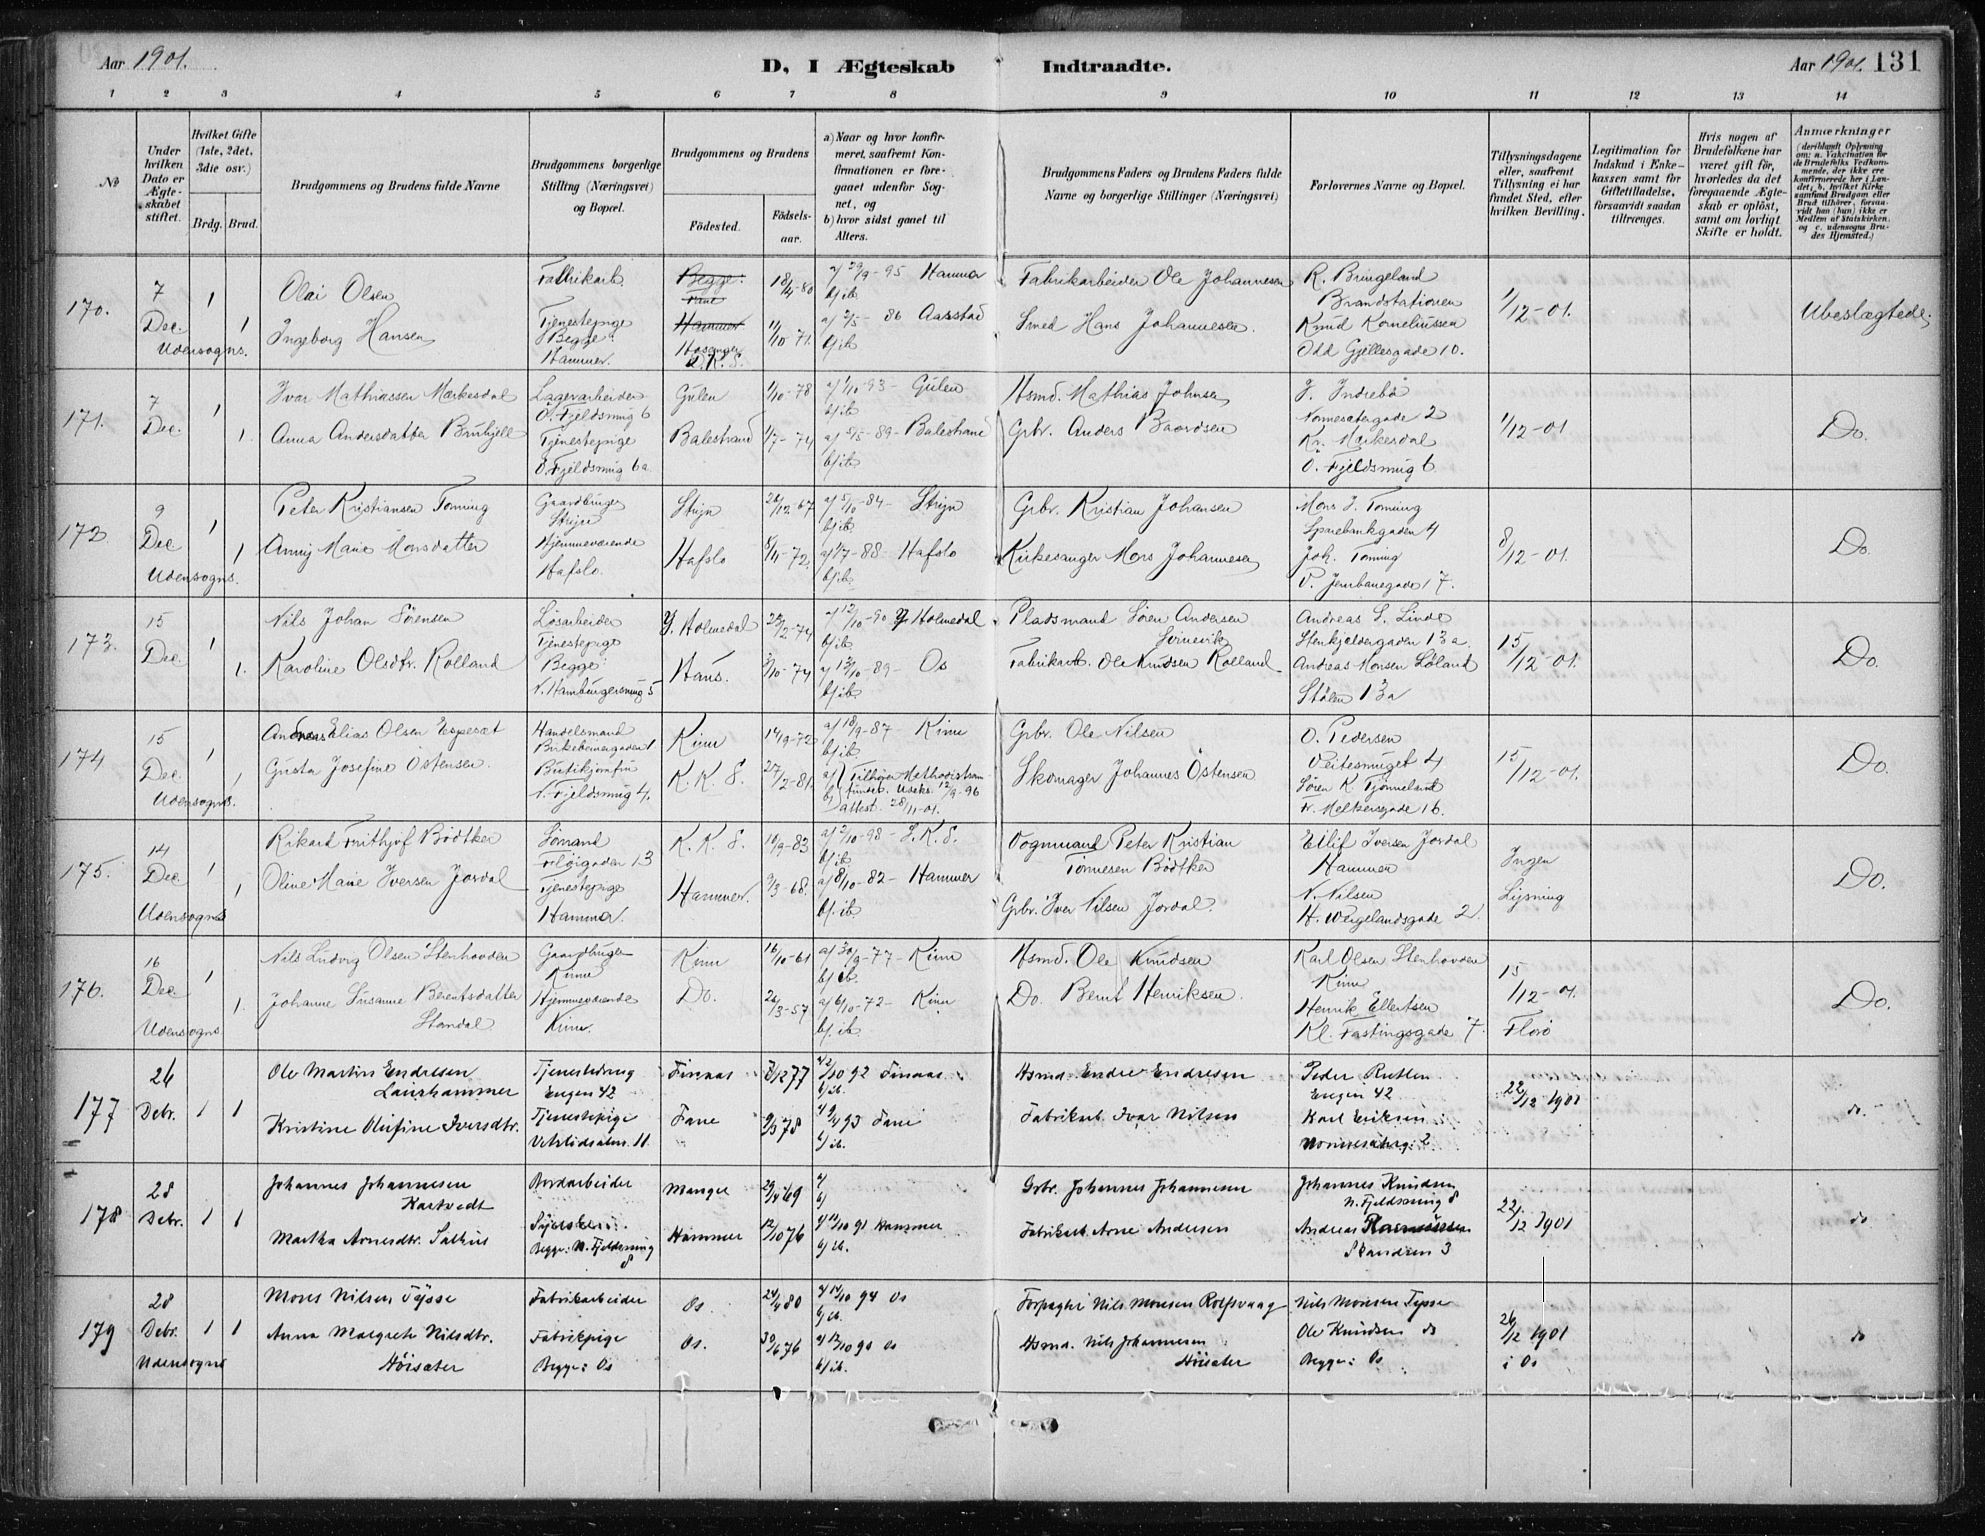 Aar 1901.
D, I Ægteskab Indtraadte.
Aar 1901. 131
1 2 3 4 5 6 7 8 9 10 11 12 13 14
No
Under hvilken Dato er Ægteskabet stiftet.
Hvilket Gifte (1ste, 2det, 3die osv.)
Brdg. Brud.
Brudgommens og Brudens fulde Navne
Brudgommens borgerlige Stilling (Næringsvei) og Bopæl.
Brudgommens og Brudens
Fødested.
Fødselsaar.
a) Naar og hvor konfirmeret, saafremt Konfirmationen er foregaaet udenfor Sognet, og
b) hvor sidst gaaet til Alters.
Brudgommens Faders og Brudens Faders fulde Navne og borgerlige Stillinger (Næringsvei)
Forlovernes Navne og Bopæl.
Tillysningsdagene eller, saafremt Tillysning ei har fundet Sted, efter hvilken Bevilling.
Legitimation for Indskud i Enkekassen samt for Giftetilladelse, forsaavidt saadan tiltrænges.
Hvis nogen af Brudefolkene har været gift før, hvorledes da det foregaaende Ægteskab er opløst, samt om lovligt Skifte er holdt.
Anmærkninger (deriblandt Oplysning om: a. Vakcination for de Brudefolks Vedkommende, der ikke ere konfirmerede her i Landet, b. hvilket Kirkesamfund Brudgom eller Brud tilhører, forsaavidt han (hun) ikke er Medlem af Statskirken, og c. udensogns Brudes Hjemsted.)
170. 7 Dec. Udensogns. 1 1
Olai Olsen
Ingeborg Hansen
Fabrikarb.
Tjenestepige
Begge:
Hammer.
Begge:
Hammer
Hosanger
18/4-80
11/10-71.
a/ 29/9-95 Hammer
b/ ib
a/ 2/5-86 Aarstad
b/ ib
Fabrikarbeider Ole Johannesen
Smed Hans Johannesen.
R. Bringeland
Brandstationen
Knud Korneliussen
Odd Gjellesgade 10.
1/12-01.
Ubeslægtede.
171. 7 Dec. 1 1.
Ivar Mathiassen Markesdal
Anna Andersdatter Bruhjell
Lagerarbeider
O. Fjeldsmug 6
Tjenestepige
O. Fjeldsmug 6a
Gulen
Balestrand
1/10-78
1/7-74
a/ 1/10-93- Gulen
b/ ib
a/ 5/5-89- Balestrand
b/ ib
Hsmd. Mathias Johnsen
Grbr. Anders Baardsen
J. Indrebö
Nonnesætergade 2
Kr. Markesdal
O. Fjeldsmug 6
1/12-01
Do.
172. 9 Dec Udensogns. 1 1
Peter Kristiansen Tonning
Anny Marie Monsdatter
Gaardbruger
Stryn
Hjemmeværende
Hafslo.
Stryn
Hafslo
26/12-67
8/4-72.
a/ 5/10-84- Stryn
b/ ib
a/ 1/7-88- Hafslo
b/ ib
Grbr. Kristian Johansen
Kirkesanger Mons Johannesen
Mons J. Tonning
Sparebankgaden 4
Joh. Tonning
V. Jernbanegade 17.
8/12-01.
Do.
173. 15 Dec. 1 1.
Nils Johan Sörensen
Karoline Olsdtr. Rolland
Løsarbeider
Tjenestepige
Begge:
N. Hamburgersmug 5
Y. Holmedal
Haus.
28/2-74
3/10-74
a/ 12/10-90 Y Holmedal
b/ ib
a/ 13/10-89- Os
b/ ib
Pladsmand Sören Andersen
Svinevik
Fabrikarb. Ole Knudsen Rolland
Andreas S. Linde
Stenkjeldergaden 13a
Andreas Monsen Loland
Stölen 13a
15/12-01.
Do.
174 15 Dec. Udensogns. 1 1
Andreas Elias Olsen Espeset
Gusta Josefine Östensen.
Handelsmand
Birkebeinergaden 1
Butikjomfru
N. Fjeldsmug 4.
Kinn
K. K. S.
14/9-72
27/2-81.
a/ 18/9-87 Kinn
b/ ib
a/ Tilhører Methodistsamfundet. Udsk. 12/9-96
b/ attest. 28/11-01.
Grbr. Ole Nilsen
Skomager Johannes Östensen
O. Pedersen
Veitesmuget 4
Sören K. Tjønneland
Fr. Meltzersgade 16.
15/12-01.
Do.
175. 14 Dec Udensogns 1 1
Rikard Frithjof Bödtker
Oline Marie Iversen Jordal
Sömand
Fløigaden 13
Tjenestepige
Hammer.
K. K. S.
Hammer.
10/9-83
3/3-68.
a/ 2/10-98- S. K. S.
b/ ib
a/ 8/10-82- Hammer
b/ ib
Vognmand Peter Kristian
Tönnesen Bödtker
Grbr. Iver Nilsen Jordal.
Eilif Iversen Jordal
Hammer
N. Nilsen
H. Wergelandsgade 2.
Ingen
Lysning
Do.
176. 16 Dec. Udensogns 1 1.
Nils Ludvig Olsen Stenhovden
Johanne Susanne Berentsdatter
Standal
Gaardbruger
Kinn
Hjemmeværende
Kinn.
Kinn
Do.
16/10-61
26/3-57
a/ 30/9-77- Kinn
b/ ib.
a/ 6/10-72- Kinn
b/ ib.
Hsmd. Ole Knudsen
Do. Bernt Henriksen.
Karl Olsen Stenhovden
Kinn
Henrik Ellertsen
Kl. Fastingsgade 7.
15/12-01.
Florö
Do.
177 26 Debr. 1 1
Ole Martin Endresen
Laurhammer
Kristine Olufine Iversdtr.
Tjenestedreng
Engen 42
Tjenestepige
Vetrlidsalm. 11
Finaas
Fane
3/12 77
9/3 78
a/ 2/10 92 Finaas
b/ ib.
a/ 9/4 93 Fane
b/ ib.
Hsmd. Endre Endresen
Fabrikarb. Ivar Nilsen
Peder Rutten
Engen 42
Karl Eriksen
Nonnesæterg. 2
22/12 1901
do.
178 28 Debr. 1 1
Johannes Johannesen
Kastvedt
Martha Arnesdtr. Salhus
Bordarbeider
Syerske
Begge: N. Fjeldsmug 8
Manger
Hammer
29/4 69
12/10 76
a/
b/
a/ 11/10 91 Hammer
b/ ib.
Grbr. Johannes Johannesen
Fabrikarb. Arne Andersen
Johannes Knudsen
N. Fjeldsmug 8
Andreas Rasmussen
Skandsen 3
22/12 1901
do
179 28 Debr. Udensogns 1 1
Mons Nilsen Tysse
Anna Margrete Nilsdtr.
Höisæter
Fabrikarbeider
Fabrikpige
Begge: Os
Os.
Os.
24/4 80
30/6 76
a/ 14/10 94 Os
b/ ib.
a/ 12/10 90 Os
b/ ib.
Forpagter Nils Monsen Rolfsvaag
Hsmd. Nils Johannesen
Höisæter
Nils Monsen Tysse
Ole Knudsen do
Begge: Os
26/12 1901
i Os
do